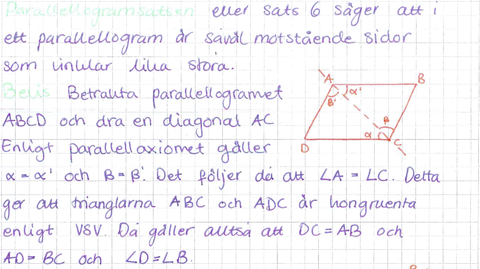 Parallellogramsatsen eller sats 6 säger att i
ett parallellogram är såväl motstående sidor
som vinklar lika stora.
Bevis Betrakta parallellogramet
ABCD och dra en diagonal AC
Enligt parallellaxiomet gäller
α = α' och β = β'. Det följer då att ∠A = ∠C. Detta
ger att trianglarna ABC och ADC är kongruenta
enligt VSV. Då gäller alltså att DC = AB och
AD = BC och ∠D = ∠B.
A B
α'
β'
β
α
D C